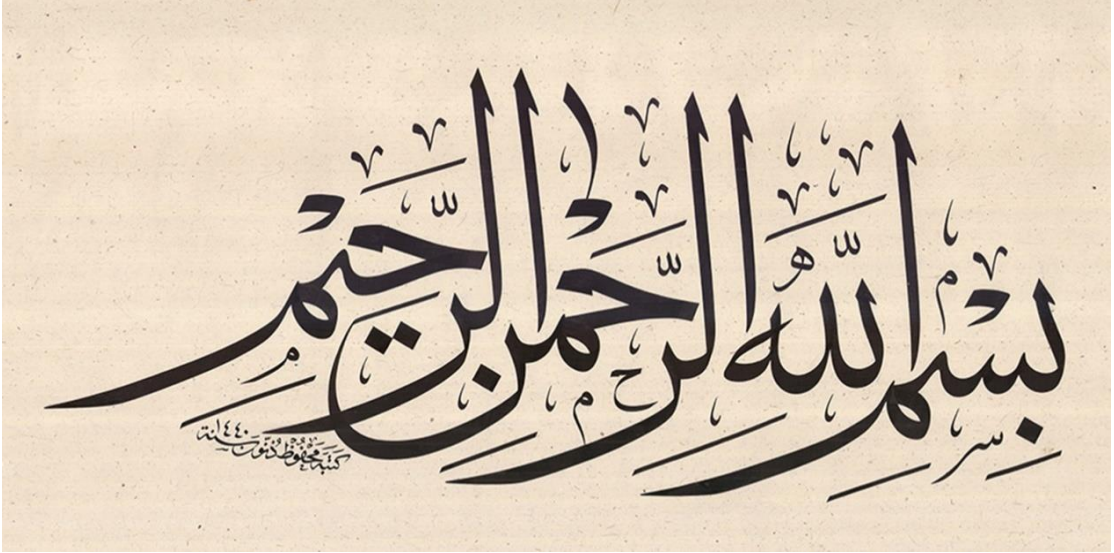 بِسْمِ اللّٰهِ الرَّحْمٰنِ الرَّحِيْمِ
كتبه محفوظ ذنون سنة ١٤٤٠